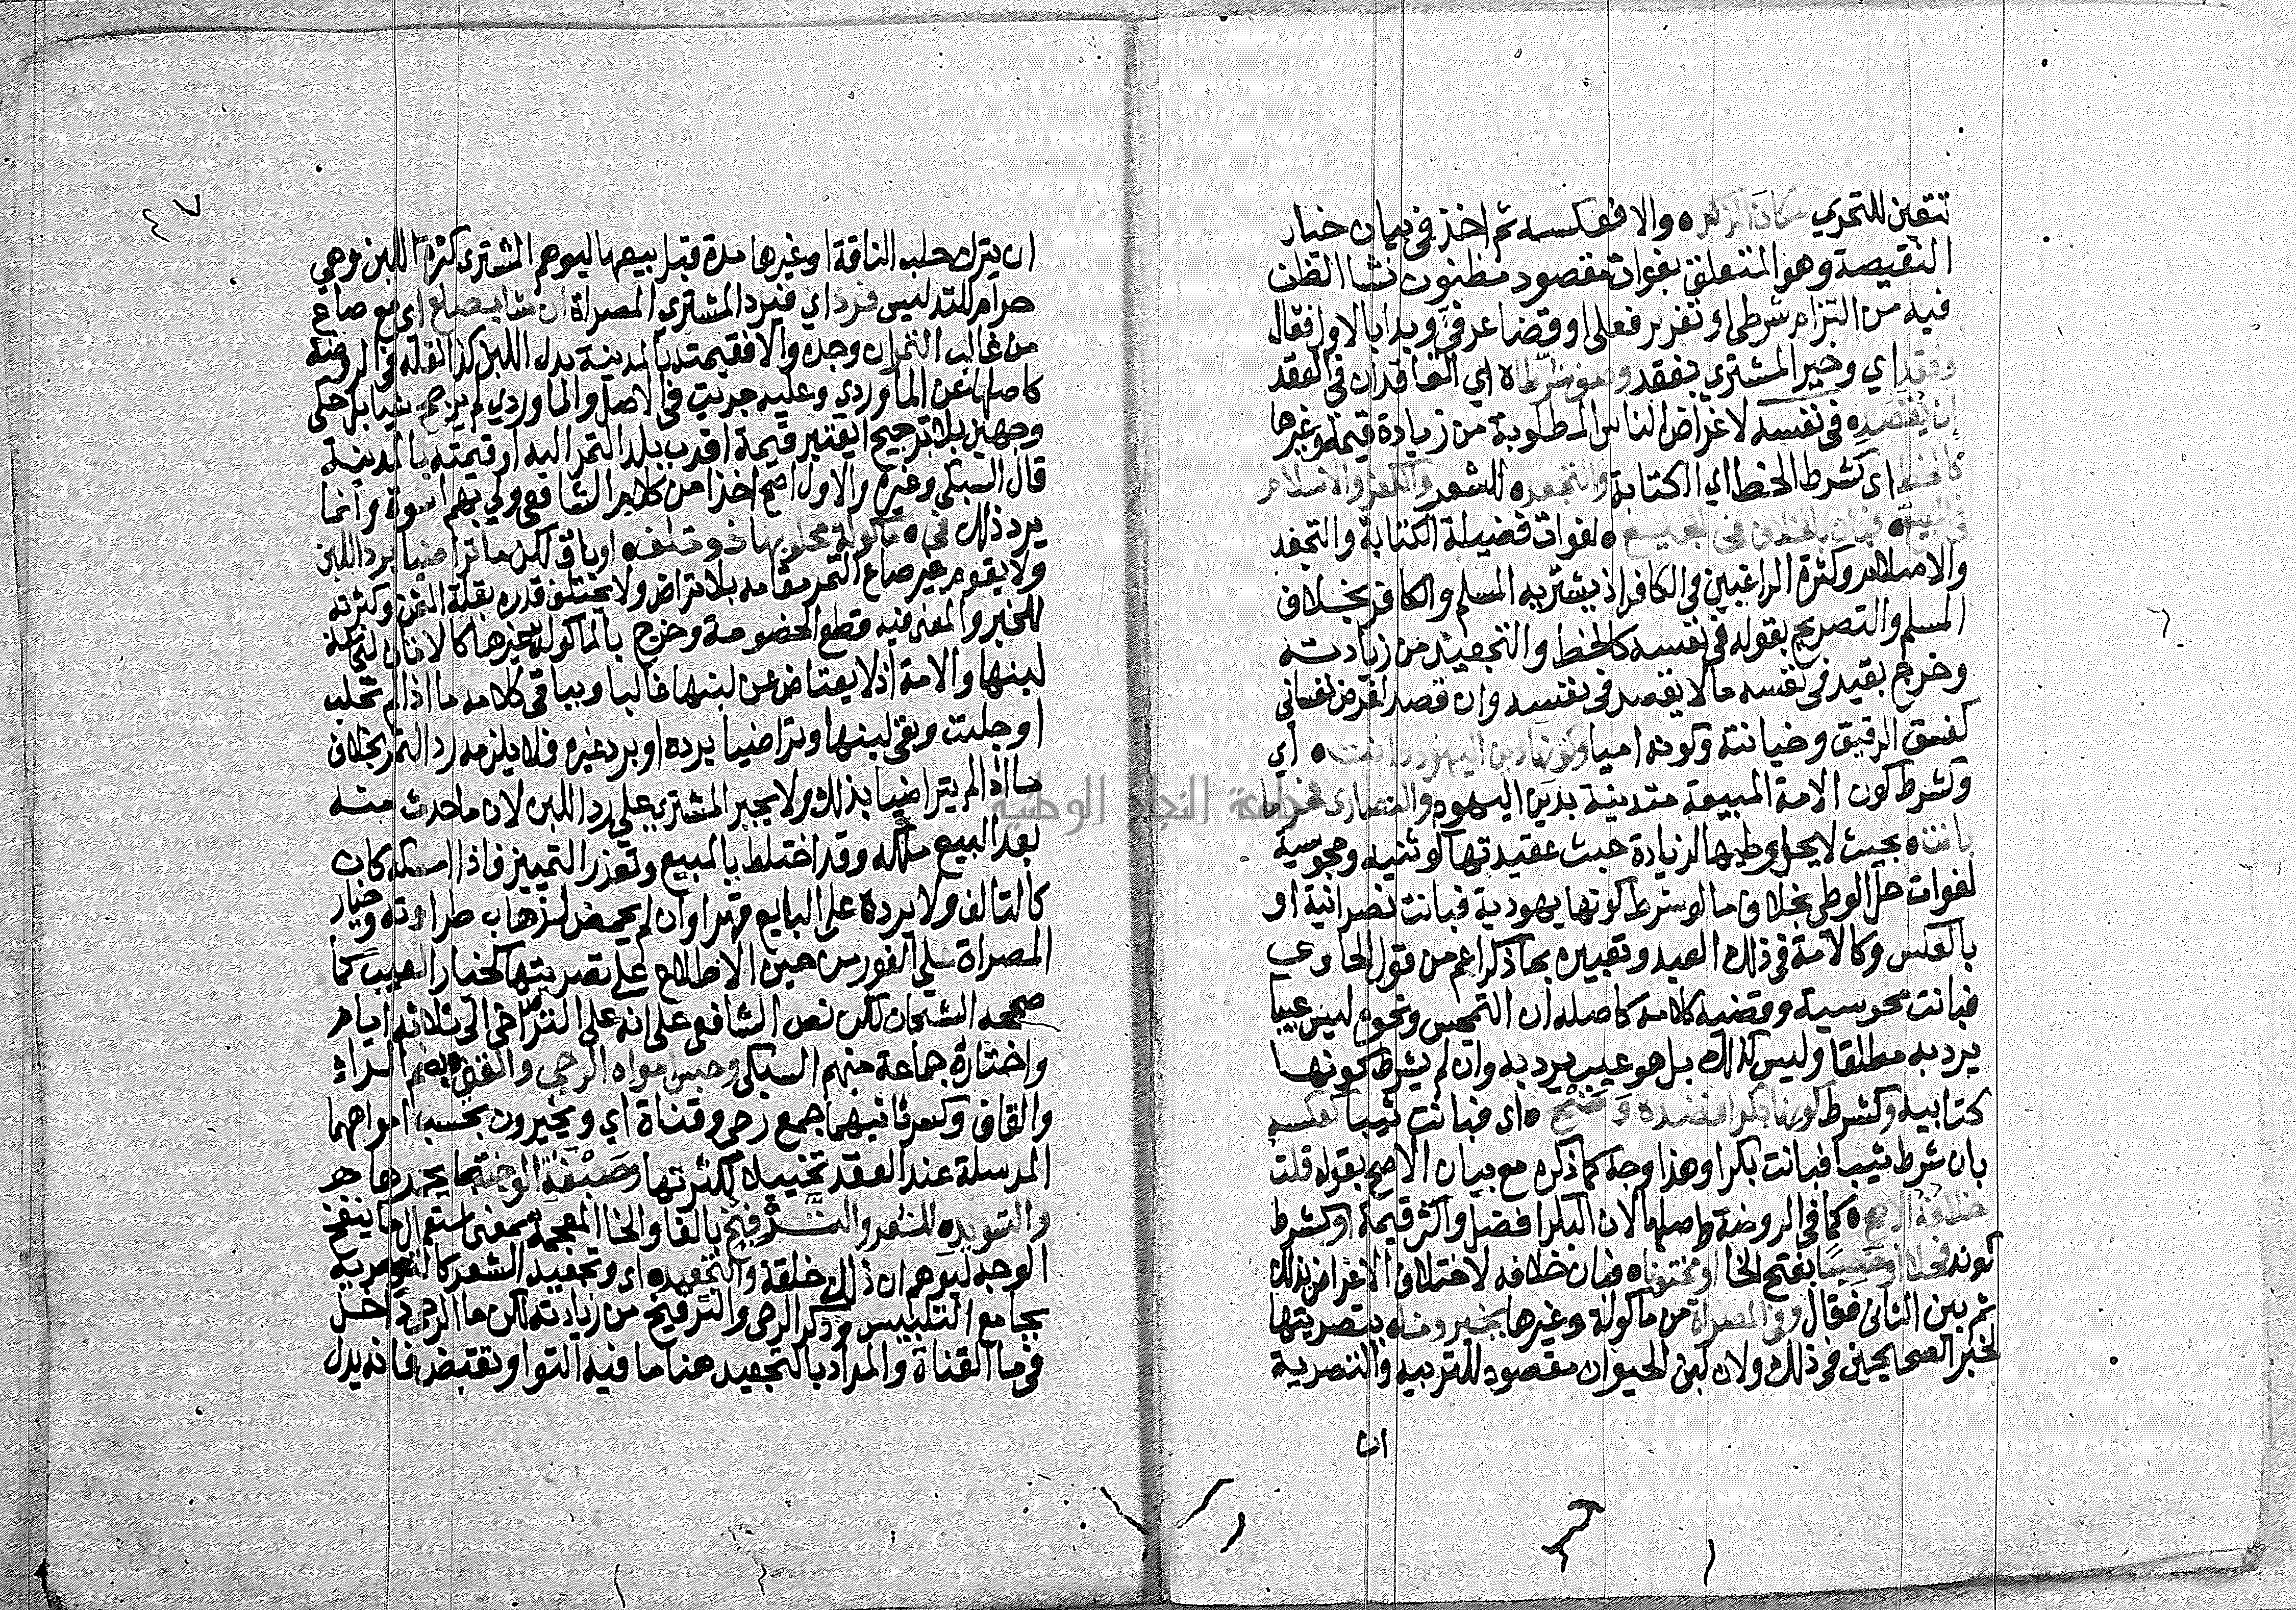 تتعين للتحري مكان الزكاه والا فعكسه ثم اخذ في بيان خيار
النقيصة وهو المتعلق بفوات مقصود مظنون نشا الظن
فيه من التزام شرطي او تغرير فعلي او قضا عرفي وبدا بالاول فقال
وفقد اي وخير المشتري بفقد وصف شرطاه اي العاقدان في العقد
ان يقصده في نفسه لاغراض الناس المطلوبة من زيادة قيمة وغيرها
كالخط اي كشرط الخط اي الكتابة والتجعد للشعر والكفر والاسلام
في البيع فبان بالخلاف في الجميع لفوات فضيلة الكتابة والتجعد
والاسلام وكثرة الراغبين في الكافر اذ يشتريه المسلم والكافر بخلاف
المسلم والتصريح بقوله في نفسه كالخط والتجعيد من زيادته
وخرج بقيد في نفسه ما لا يقصد في نفسه وان قصد لغرض نفساني
كفسق الرقيق وخيانته وكونه اميا وكونها دين اليهود دانت اي
وكشرط كون الامة المبيعة متدينة بدين اليهود والنصارى حراما
بانت بحيث لا يحل وطيها الزيادة خبث عقيدتها كوثنيه ومجوسية
لفوات حل الوطي بخلاف ما لو شرط كونها يهودية فبانت نصرانية او
بالعكس وكالامة في ذلك العبد وتعبيره بما ذكر اعم من قول الحاوي
فبانت مجوسية وقضية كلامه كاصله ان التمجس ونحوه ليس عيبا
يرد به مطلقا وليس كذلك بل هو عيب يرد به وان لم يشرط كونها
كتابيه وكشرط كونها بكرا فضده وضح اي فبانت ثيبا كعكسه
بان شرط ثيبا فبانت بكرا وهذا وجه كما ذكره مع بيان الاصح بقوله قلت
خلافه الاصح كما في الروضة واصلها لان البكر افضل واكثر قيمة وكشرط
كونه فحلا او خصيا بفتح الخا او مختونا فبان خلافه لاختلاف الاغراض بذلك
ثم بين الثاني فقال وفي المصراة من ماكولة وغيرها بخير ومناه بتصريتها
لخبر الصحيحين في ذلك ولان لبن الحيوان مقصود للتربيه والتصرية
ان
٤٧
ان يترك حلب الناقة او غيرها مدة قبل بيعها ليوهم المشتري كثرة اللبن وهي
حرام للتدليس فرد اي فيرد المشتري المصراة ان شا بصاع اي مع صاع
من غالب التمر ان وجده والا فقيمته بالمدينة بدل اللبن كذا نقله في الروضة
كاصلها عن الماوردي وعليه جريت في الاصل والماوردي لم يرجح شيا بل حكى
وجهين بلا ترجيح ايعتبر قيمة اقرب بلد التمر اليه او قيمته بالمدينة
قال السبكي وغيره والاول اصح اخذا من كلام الشافعي ولي بهم اسوة وانما
يرد ذلك في ماكولة محلوبها ذو تلف او باق لكن ما تراضيا برد اللبن
ولا يقوم غير صاع التمر مقامه بلا تراض ولا يختلف قدره بقلة اللبن وكثرته
للخبر والمعنى فيه قطع الخصومة وخرج بالماكولة غيرها كالاتان لنجاسة
لبنها والامة اذ لا يعتاض عن لبنها غالبا وبباقي كلامه ما اذا لم تحلب
او حلبت وبقي لبنها وتراضيا برده او برد غيره فلا يلزمه رد التمر بخلاف
ما اذا لم يتراضيا بذلك ولا يجبر المشتري على رد اللبن لان ما حدث منه
بعد البيع ملكه وقد اختلط بالمبيع وتعذر التمييز فاذا امسكه كان
كالتالف ولا يرده على البايع قهرا وان لم يحمض لذهاب طراوته وخيار
المصراة على الفور من حين الاطلاع على تصريتها كخيار العيب كما
صححه الشيخان لكن نص الشافعي على انه على التراخي الى ثلاثه ايام
واختاره جماعة منهم السبكي وحبس امواه الرحي والقني بضم الراء
والقاف وكسر ثانيهما جمع رحى وقناة اي ويخيرون بحبس امواهما
المرسلة عند العقد تخييلا لكثرتها وصبغة الوجه بما يحمرها هو
والتسويد للشعر والترفيخ بالفا والخا المعجمة بمعنى استعمال ما ينفخ
الوجه ليوهم ان ذلك خلقة والتجعيد اي وتجعيد الشعر كالتصرية
بجامع التلبيس وذكر الرحى والترفيخ من زيادته لكن ما الرحى داخل
في ما القناة والمراد بالتجعيد هنا ما فيه التوا وتقبض فانه يدل
جامعة النجاح الوطنية